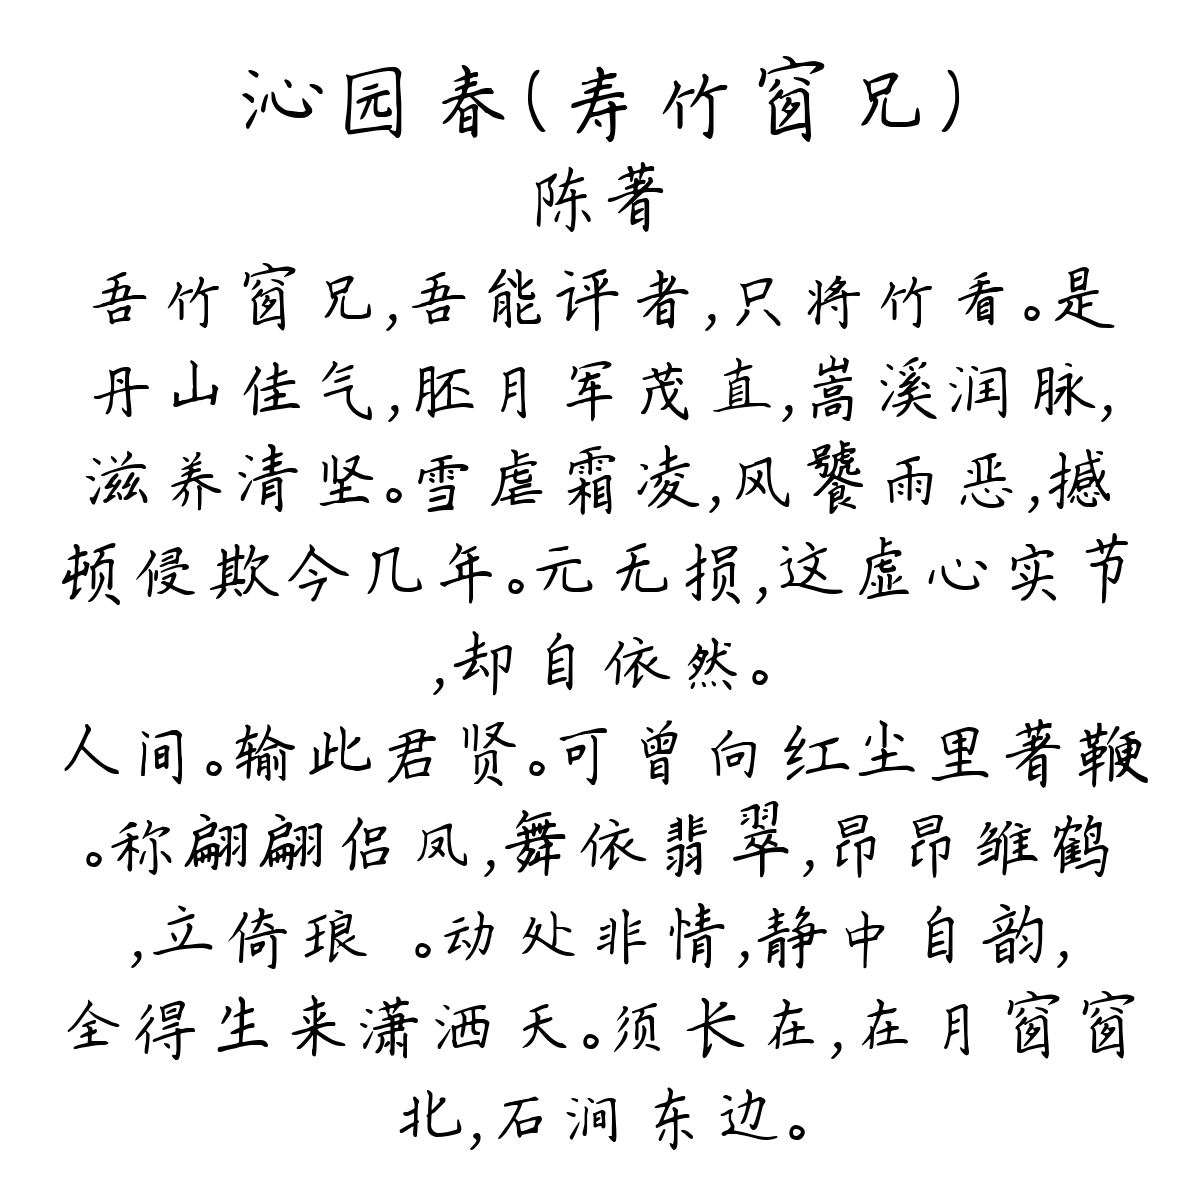 沁园春(寿竹窗兄)
陈著
吾竹窗兄,吾能评者,只将竹看。是
丹山佳气,胚月军茂直,嵩溪润脉,
滋养清坚。雪虐霜凌,风饕雨恶,撼
顿侵欺今几年。元无损,这虚心实节
,却自依然。
人间。输此君贤。可曾向红尘里著鞭
。称翩翩侣凤,舞依翡翠,昂昂雏鹤
,立倚琅 。动处非情,静中自韵,
全得生来潇洒天。须长在,在月窗窗
北,石涧东边。